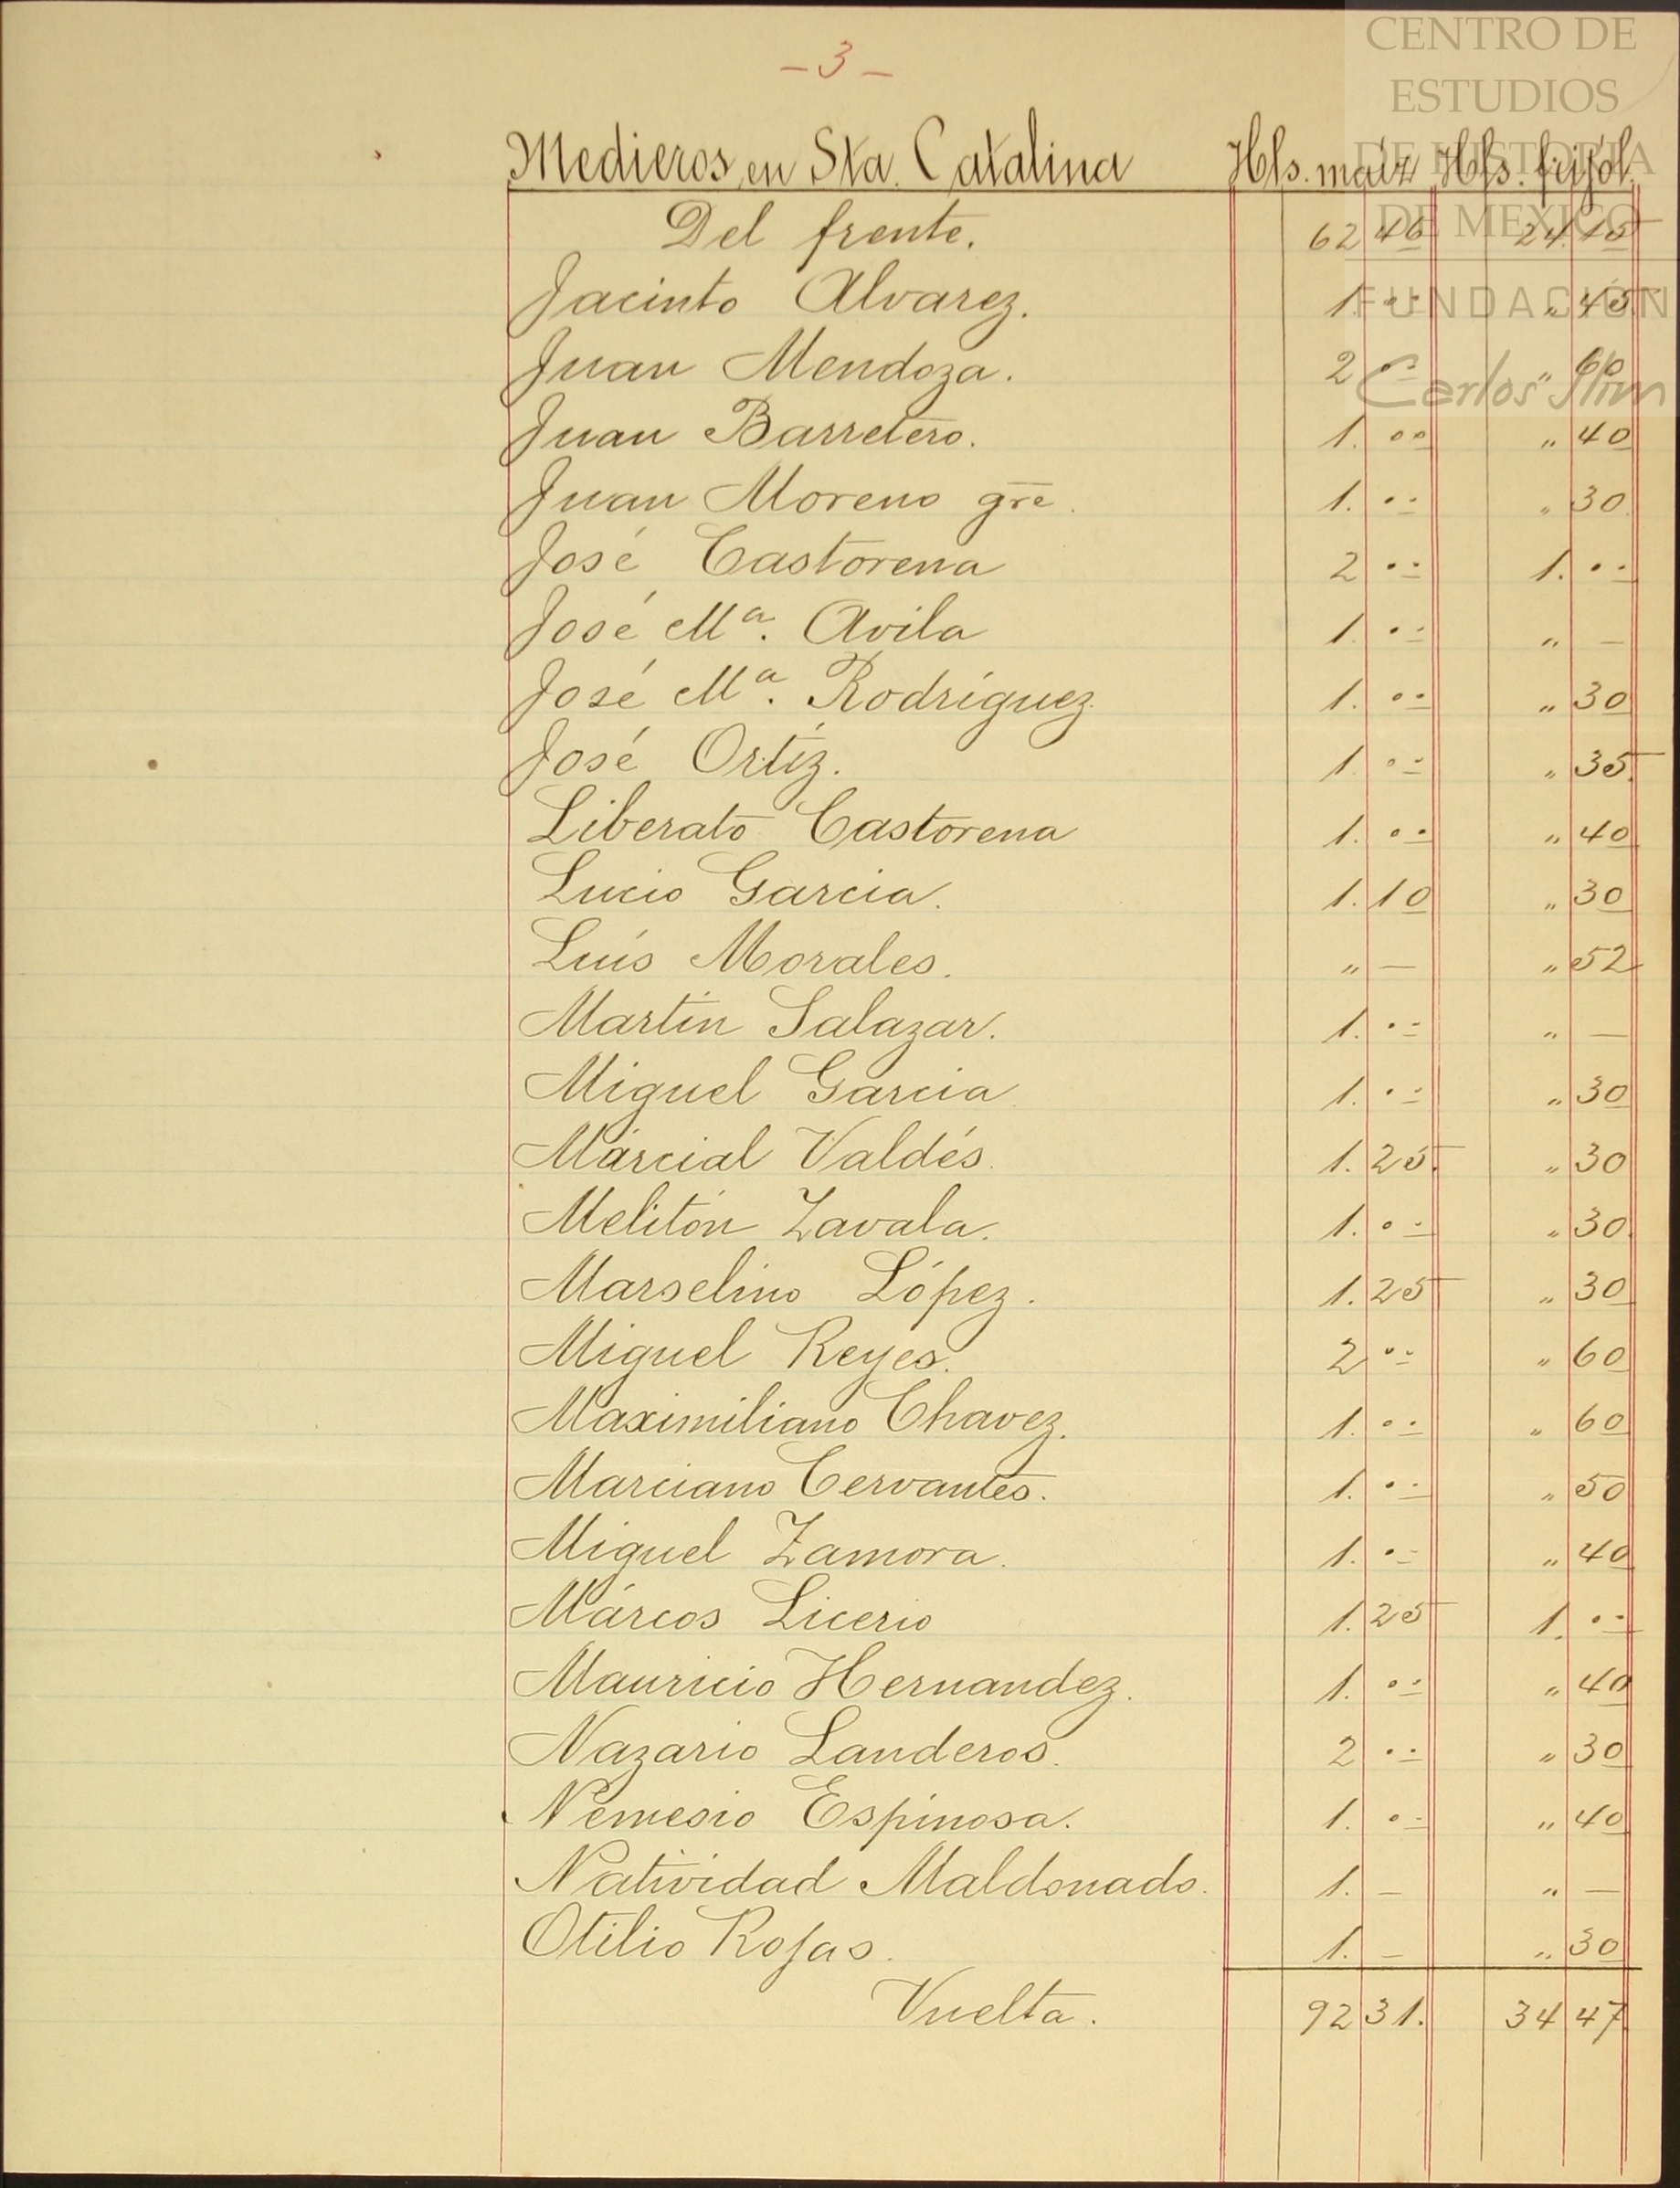 CENTRO DE
ESTUDIOS
DE HISTORIA
DE MEXICO
FUNDACIÓN
Carlos Slim
– 3 –
Medieros en Sta. Catalina Hls. maíz Hls. frijol.
Del frente. 62 46 24. 15
Jacinto Alvarez. 1. 00 „ 45
Juan Mendoza. 2 00 „ 60
Juan Barretero. 1. 00 „ 40
Juan Moreno gre. 1. 00 „ 30
José Castorena 2 00 1. 00
José Mª. Avila 1. 00 „ –
José Mª. Rodríguez 1. 00 „ 30
José Ortíz. 1 00 „ 35.
Liberato Castorena 1. 00 „ 40
Lucio Garcia. 1. 10 „ 30
Luís Morales. „ – „ 52
Martin Salazar. 1. 00 „ –
Miguel Garcia 1. 00 „ 30
Márcial Valdés. 1. 25. „ 30
Melitón Zavala. 1. 00 „ 30.
Marselino López. 1. 25 „ 30
Miguel Reyes. 2 00 „ 60
Maximiliano Chavez. 1. 00 „ 60
Marciano Cervantes. 1. 00 „ 50
Miguel Zamora. 1. 00 „ 40
Márcos Licerio 1. 25 1. 00
Mauricio Hernandez. 1. 00 „ 40
Nazario Landeros. 2 00 „ 30
Nemesio Espinosa. 1. 00 „ 40
Natividad Maldonado. 1. – „ –
Otilio Rojas. 1. – „ 30
Vuelta. 92 31. 34 47.